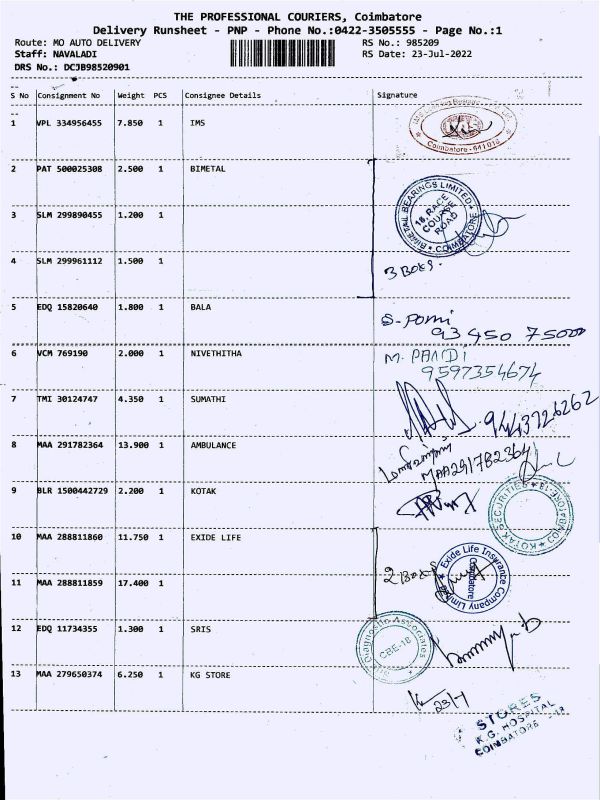 THE PROFESSIONAL COURIERS, Coimbatore
Delivery Runsheet - PNP - Phone No.:0422-3505555 - Page No.:1
Route: MO AUTO DELIVERY RS No.: 985209
Staff: NAVALADI RS Date: 23-Jul-2022
DRS No.: DCJB98520901
S No Consignment No Weight PCS Consignee Details Signature
1 VPL 334956455 7.850 1 IMS
Coimbatore - 641 018
2 PAT 500025308 2.500 1 BIMETAL
BIMETAL BEARINGS LIMITED
18, RACE
COURSE
ROAD
COIMBATORE
3 SLM 299890455 1.200 1
4 SLM 299961112 1.500 1
3 Boxs.
5 EDQ 15820640 1.800 1 BALA
S. Ponni
93 450 75000
6 VCM 769190 2.000 1 NIVETHITHA
M. PANDI
9597354674
7 TMI 30124747 4.350 1 SUMATHI
9443726262
8 MAA 291782364 13.900 1 AMBULANCE
MAA291782364
9 BLR 1500442729 2.200 1 KOTAK
KOTAK SECURITIES
10 MAA 288811860 11.750 1 EXIDE LIFE
Exide Life Insurance Company Limited
Coimbatore
2 Boxs
11 MAA 288811859 17.400 1
12 EDQ 11734355 1.300 1 SRIS
Diagnostic Associates
CBE-18
13 MAA 279650374 6.250 1 KG STORE
23/7
STORES
K.G. HOSPITAL
COIMBATORE - 18